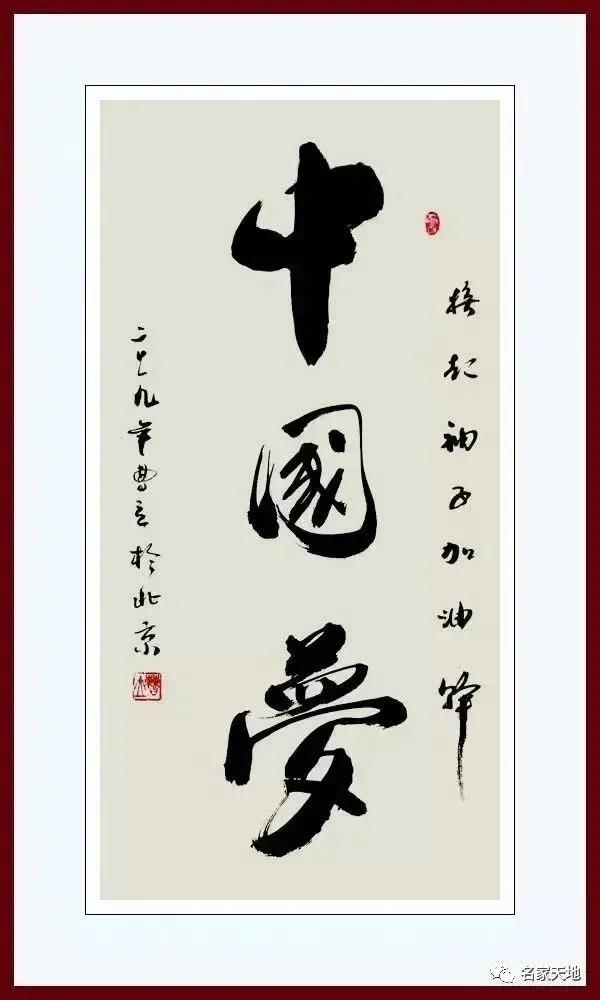 撸起袖子加油幹
中國夢
二〇一九年曹立於北京
名家天地